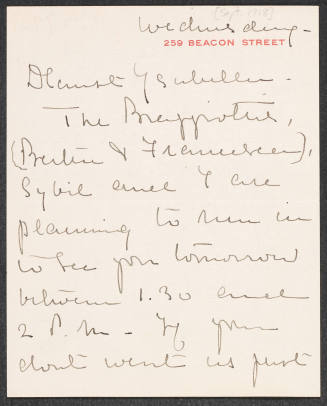 [Sept. 1918]
Wednesday -
259 BEACON STREET
Dearest Ysabella -
The Braggiottis,
(Berthe & Francesca),
Sybil and I are
planning to run in
to see you tomorrow
between 1.30 and
2 P.M - If you
dont want us just